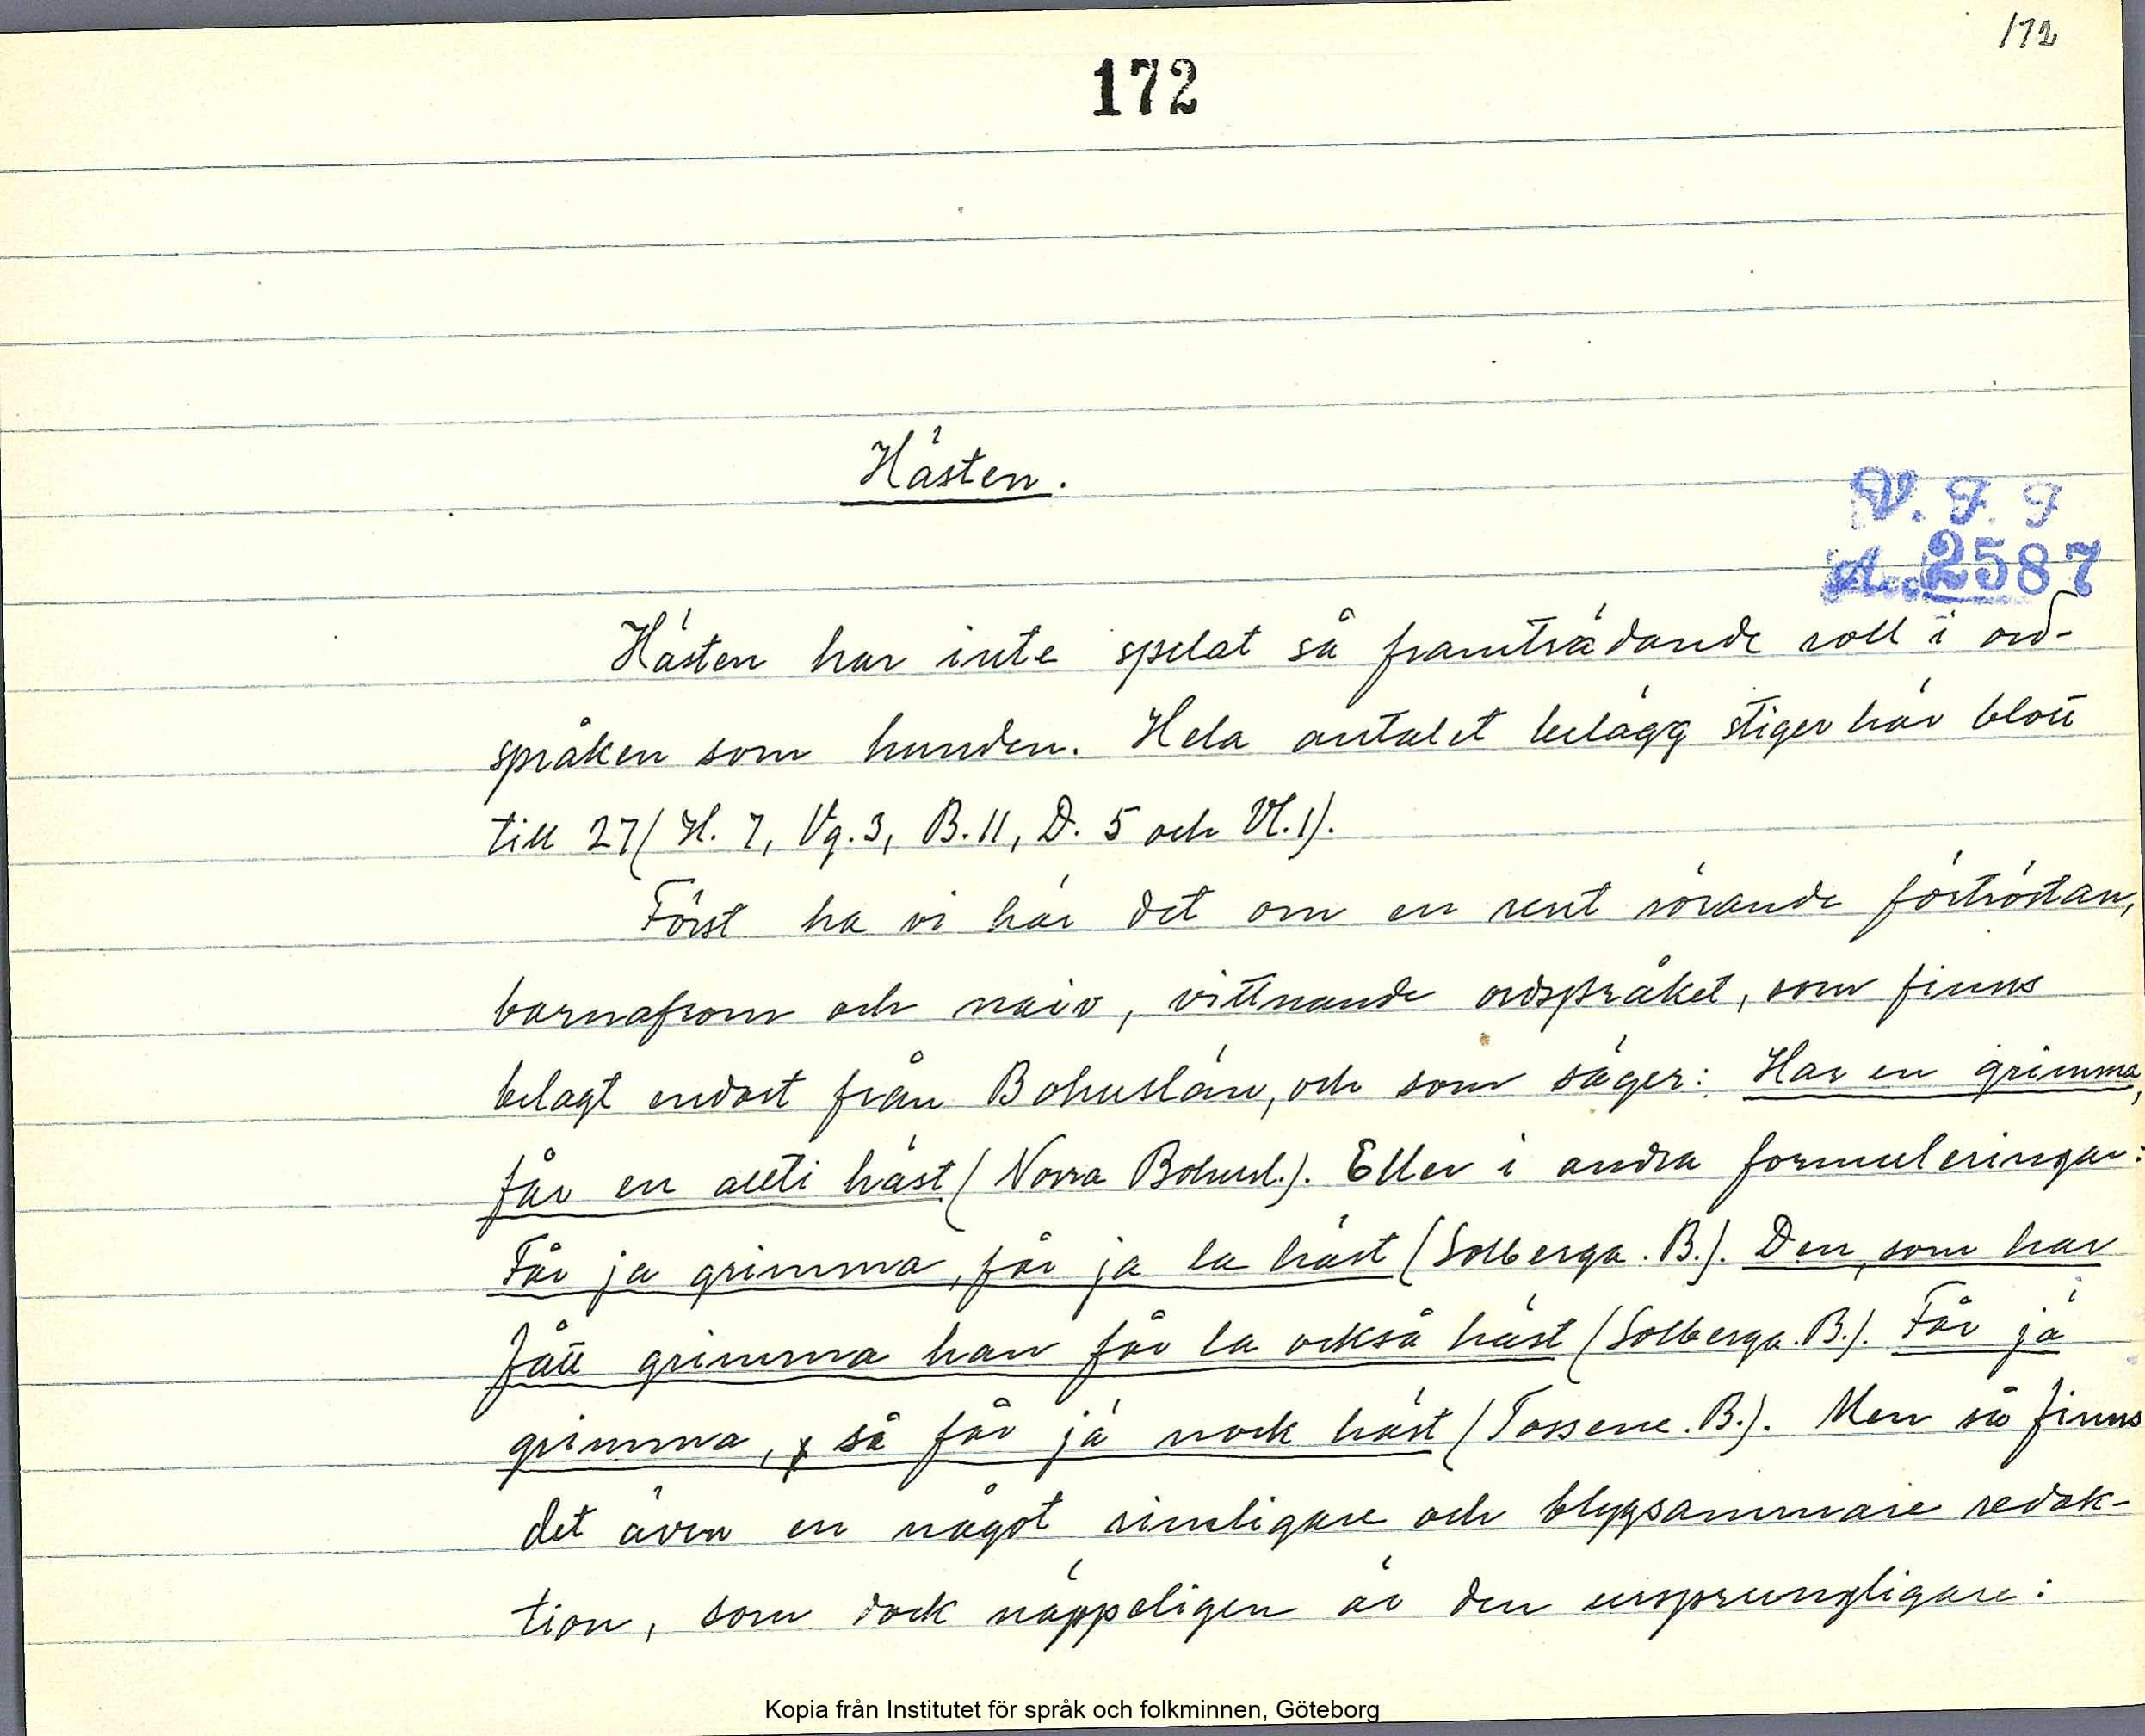 172
172
Hästen.
V. F. F
Acc. 2587
Hästen har inte spelat så framträdande roll i ord-
språken som hunden. Hela antalet belägg stiger här blott
till 27 (H. 7, Vg. 3, B. 11, D. 5 och Vl. 1).
Först ha vi här det om en rent rörande förtröstan,
barnafrom och naiv, vittnande ordspråket, som finns
belagt endast från Bohuslän, och som säger: Har en grimma,
får en allti häst (Norra Bohusl.). Eller i andra formuleringar:
Får ja grimma, får ja la häst (Solberga. B.). Den, som har
fått grimma han får la också häst (Solberga. B.). Får jä
grimma, så får jä nock häst (Tossene. B.). Men så finns
det även en något rimligare och blygsammare redak-
tion, som dock näppeligen är den ursprungligare:
Kopia från Institutet för språk och folkminnen, Göteborg